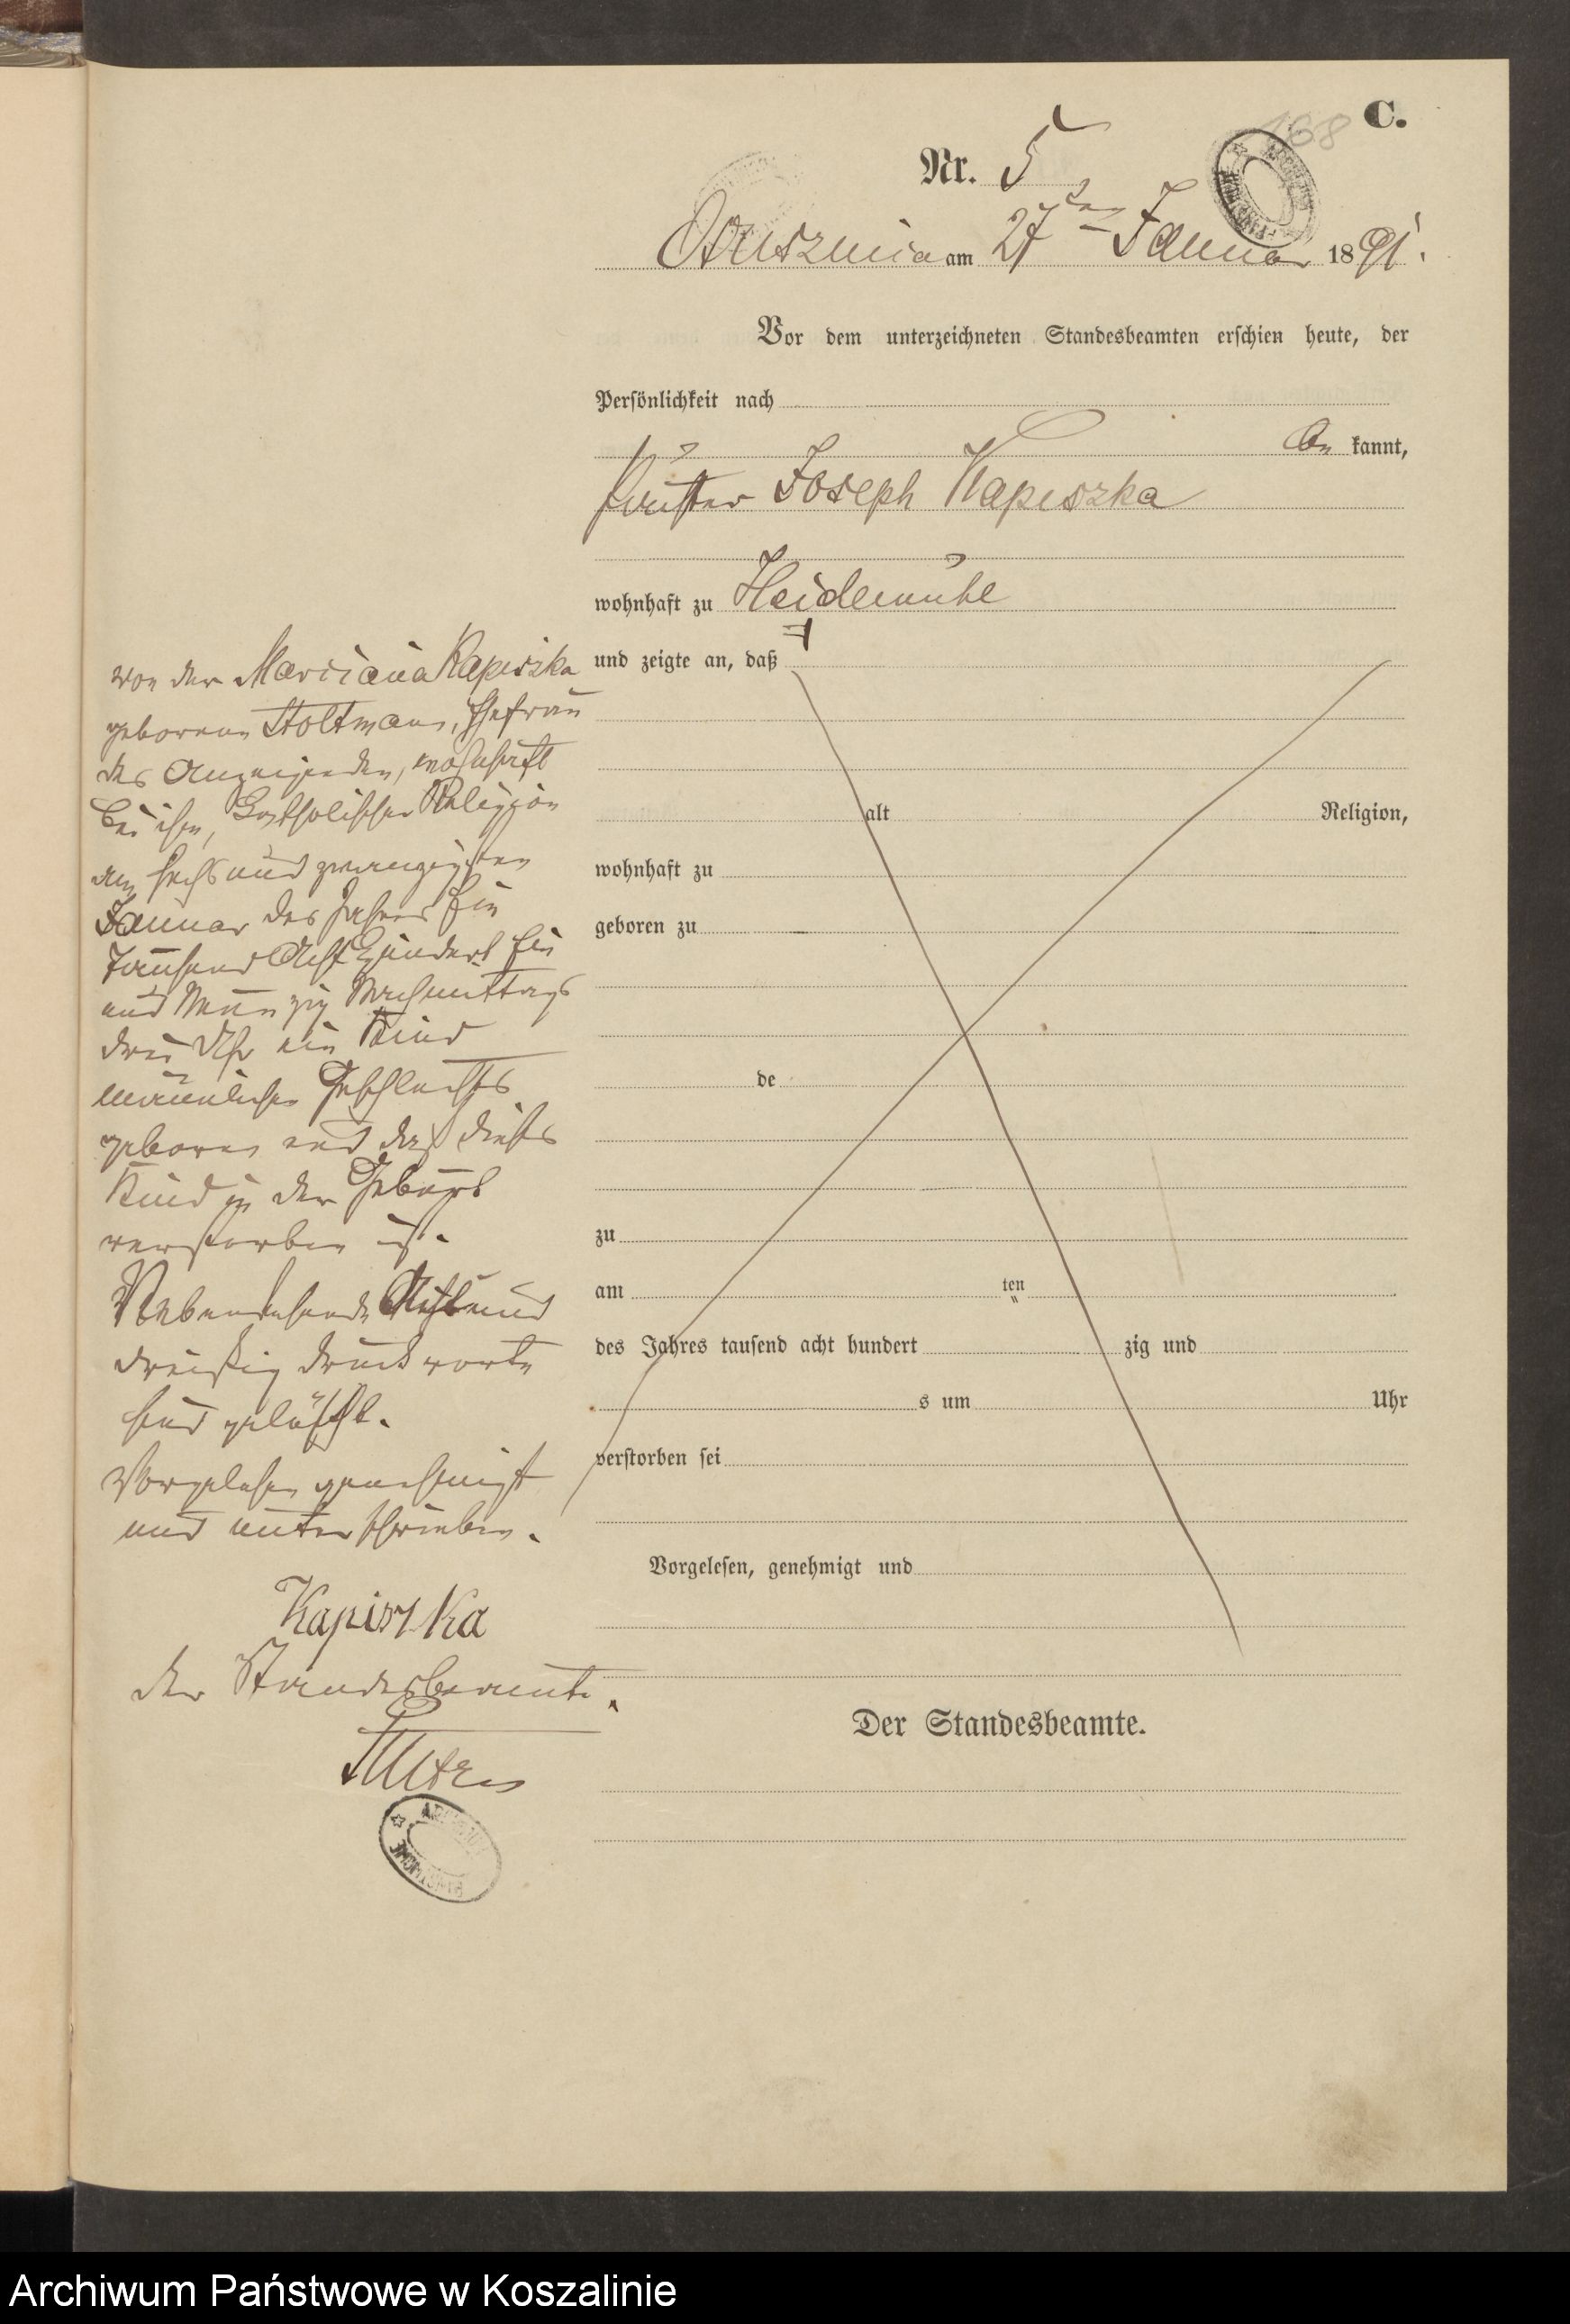 C.
168
Nr. 5
Ostuszuica am 27ten Januar 1891.
Vor dem unterzeichneten Standesbeamten erschien heute, der
Persönlichkeit nach
be kannt,
Joseph Kapiszka
wohnhaft zu Heidemühl
und zeigte an, daß
von der Marianna Kapiszka
geborene Stoltmann, Ehefrau
des Anzeigenden, wohnhaft
bei ihm, katholischer Religion
am sechs und zwanzigsten
Januar des Jahres Ein
tausend Acht Hundert Ein
und Neunzig Nachmittags
drei Uhr ein Kind
männlichen Geschlechts
geboren und daß dieses
Kind in der Geburt
verstorben ist.
Nebenstehende Acht und
dreißig Druckworte
sind gelöscht.
Vorgelesen genehmigt
und unterschrieben.
Kapiszka
Der Standesbeamte.
alt Religion,
wohnhaft zu
geboren zu
de
zu
am ten
des Jahres tausend acht hundert zig und
s um Uhr
verstorben sei
Vorgelesen, genehmigt und
Der Standesbeamte.
Archiwum Państwowe w Koszalinie